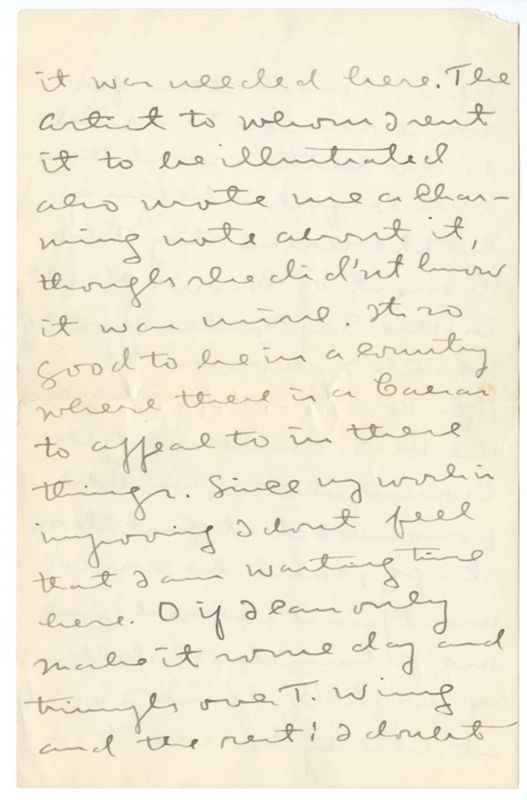 it was needed here. The
artist to whom I sent
it to be illustrated
also wrote me a char-
ming note about it,
though she did'nt know
it was mine. Its so
good to be in a country
where there is a Caesar
to appeal to in these
things. Since my work is
improving I dont feel
that I am wasting time
here. O if I can only
make it some day and
triumph over T. Wing
and the rest! I doubt